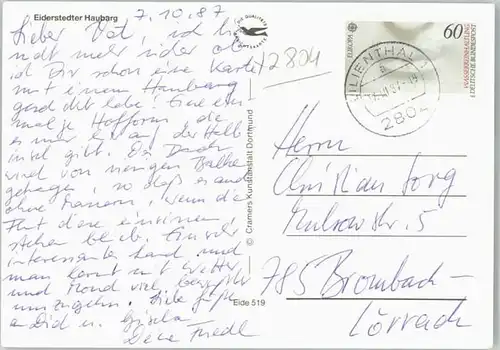 Eiderstedter Haubarg
7.10.87
Lieber Vat, ich bin
nicht mehr sicher ob
ich Dir schon eine Karte
mit einem Haubarg
geschickt habe! Eine ein-
malige Hofform, die
es nur hier auf der Halb
insel gibt. Das Dach
wird von wenigen Balken
getragen, so daß es auch
ohne Mauern, wenn die
Flut diese einrissen,
stehen blieb. Ein sehr
interessantes Land, und
man lernt mit Wetter
und Mond viel besser
umzugehen. Liebe Grüße
an Dich u. Gisela
Deine Friedl
2804
© Cramers Kunstanstalt Dortmund
Eide 519
EUROPA
60
DEUTSCHE BUNDESPOST
LILIENTHAL 1
a
2804
Herrn
Christian Sorg
str. 5
785 Brombach-
Lörrach